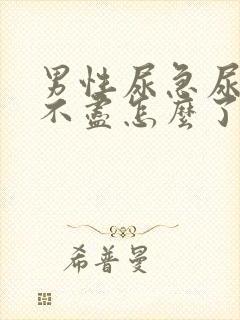 男性尿急尿
不盡怎麼了
希普曼